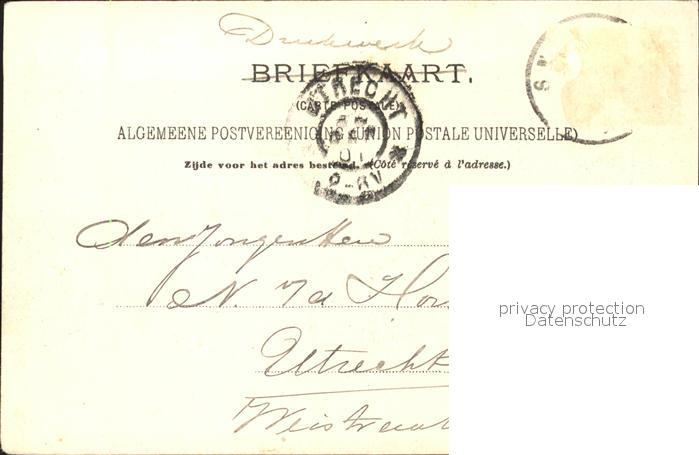 Drukwerk
BRIEFKAART.
(CARTE POSTALE)
UTRECHT
ALGEMEENE POSTVEREENIGING (UNION POSTALE UNIVERSELLE)
Zijde voor het adres bestemd. (Côté réservé à l'adresse.)
den Jongen Heer
N. v/d
Utrecht
privacy protection
Datenschutz